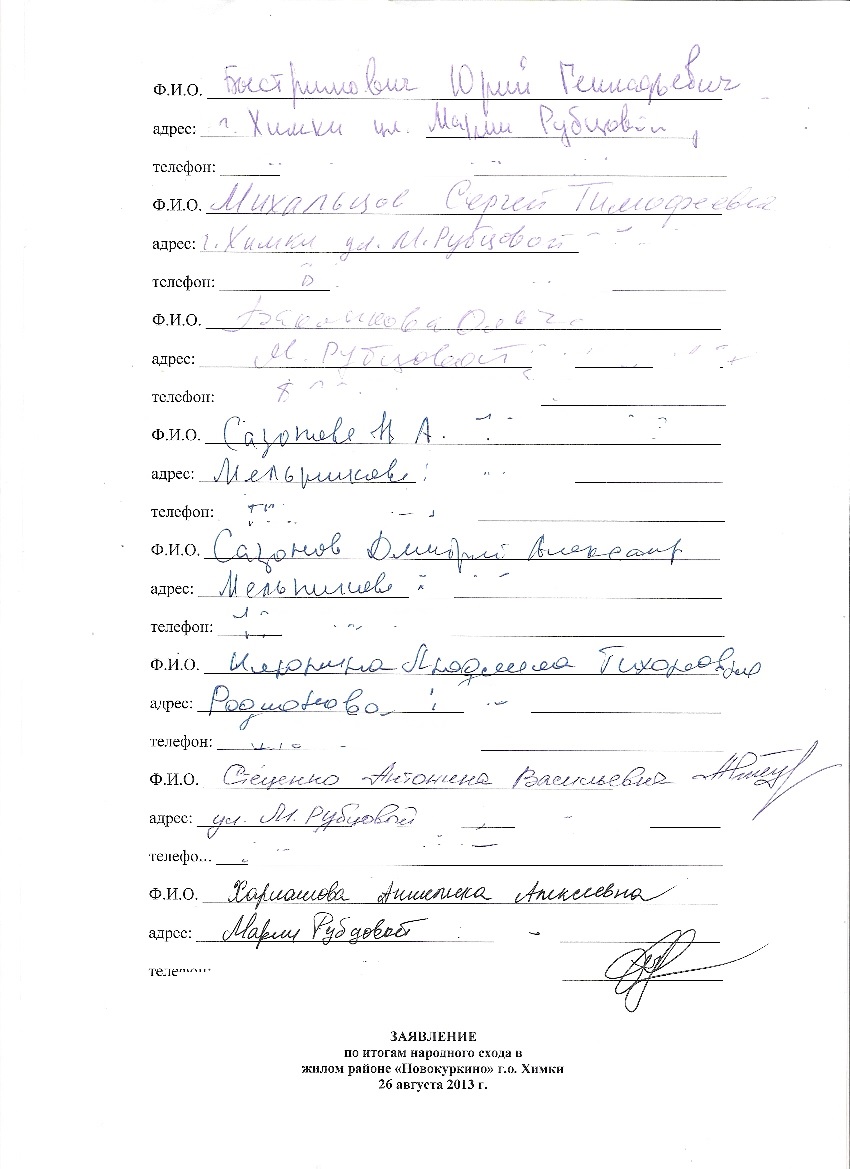 Ф.И.О. Быстримович Юрий Геннадьевич
адрес: г. Химки ул. Марии Рубцовой
телефон:
Ф.И.О. Михальцов Сергей Тимофеевич
адрес: г. Химки ул. М. Рубцовой
телефон:
Ф.И.О. Ольга
адрес: М. Рубцовой
телефон:
Ф.И.О. Сазонова Н А.
адрес: Мельникова
телефон:
Ф.И.О. Сазонов Дмитрий Александр
адрес: Мельникова
телефон:
Ф.И.О. Людмила Тихоновна
адрес: Родионова
телефон:
Ф.И.О. Стеценко Антонина Васильевна
адрес: ул. М. Рубцовой
телефо...
Ф.И.О. Харламова Анжелика Алексеевна
адрес: Марии Рубцовой
телефон:
ЗАЯВЛЕНИЕ
по итогам народного схода в
жилом районе «Новокуркино» г.о. Химки
26 августа 2013 г.